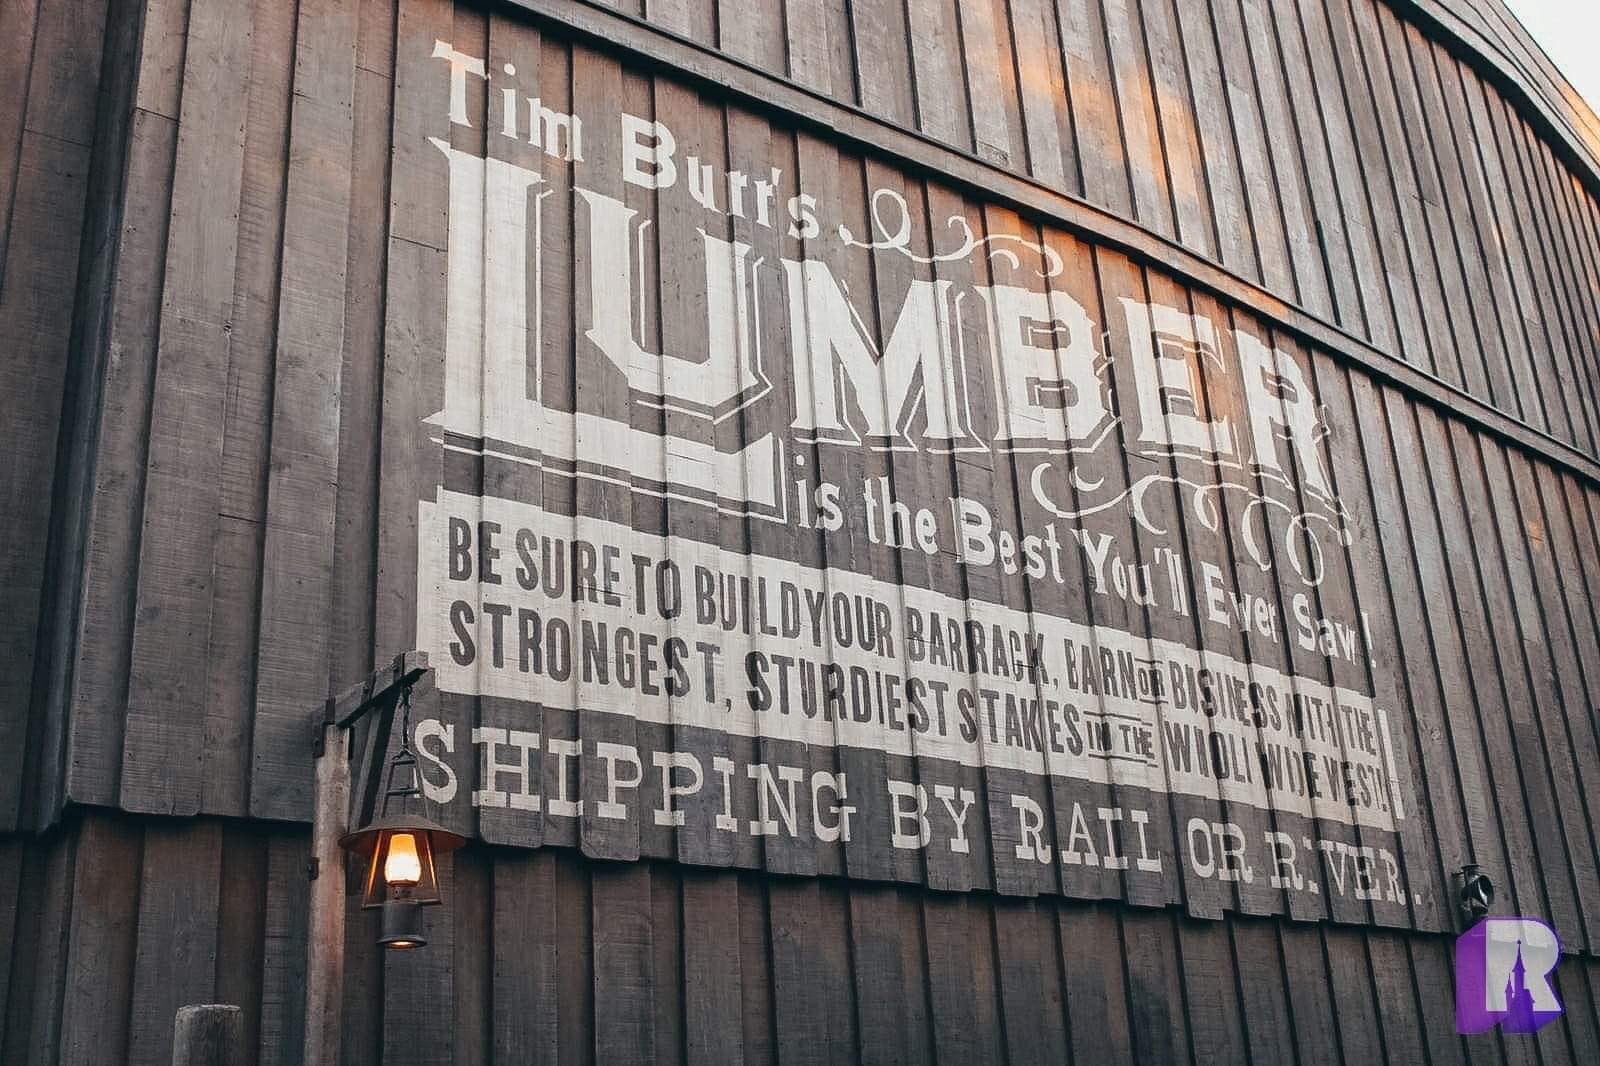 Tim Burr's
LUMBER
is the Best You'll Ever Saw!
BE SURE TO BUILD YOUR BARRACK, BARN OR BUSINESS WITH THE
STRONGEST, STURDIEST STAKES IN THE WHOLE WIDE WEST!
SHIPPING BY RAIL OR RIVER.
R